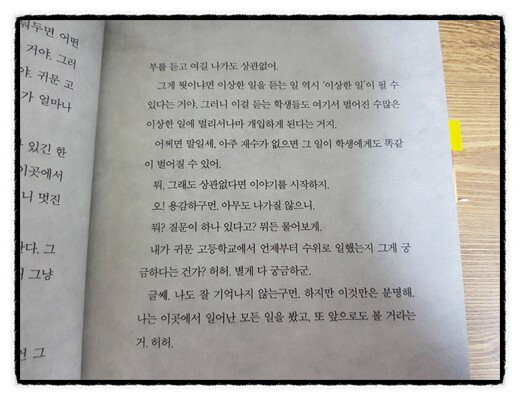 둬두면 어떤
거야. 그러
야. 귀문 고
가 얼마나
있긴 한
이곳에서
니 멋진
란다. 그
그냥
그
부를 듣고 여길 나가도 상관없어.
그게 뭣이냐면 이상한 일을 듣는 일 역시 '이상한 일'이 될 수
있다는 거야. 그러니 이걸 듣는 학생들도 여기서 벌어진 수많은
이상한 일에 멀리서나마 개입하게 된다는 거지.
어쩌면 말일세. 아주 재수가 없으면 그 일이 학생에게도 똑같
이 벌어질 수 있어.
뭐, 그래도 상관없다면 이야기를 시작하지.
오! 용감하구먼. 아무도 나가질 않으니.
뭐? 질문이 하나 있다고? 뭐든 물어보게.
내가 귀문 고등학교에서 언제부터 수위로 일했는지 그게 궁
금하다는 건가? 허허. 별게 다 궁금하군.
글쎄. 나도 잘 기억나지 않는구먼. 하지만 이것만은 분명해.
나는 이곳에서 일어난 모든 일을 봤고, 또 앞으로도 볼 거라는
거. 허허.